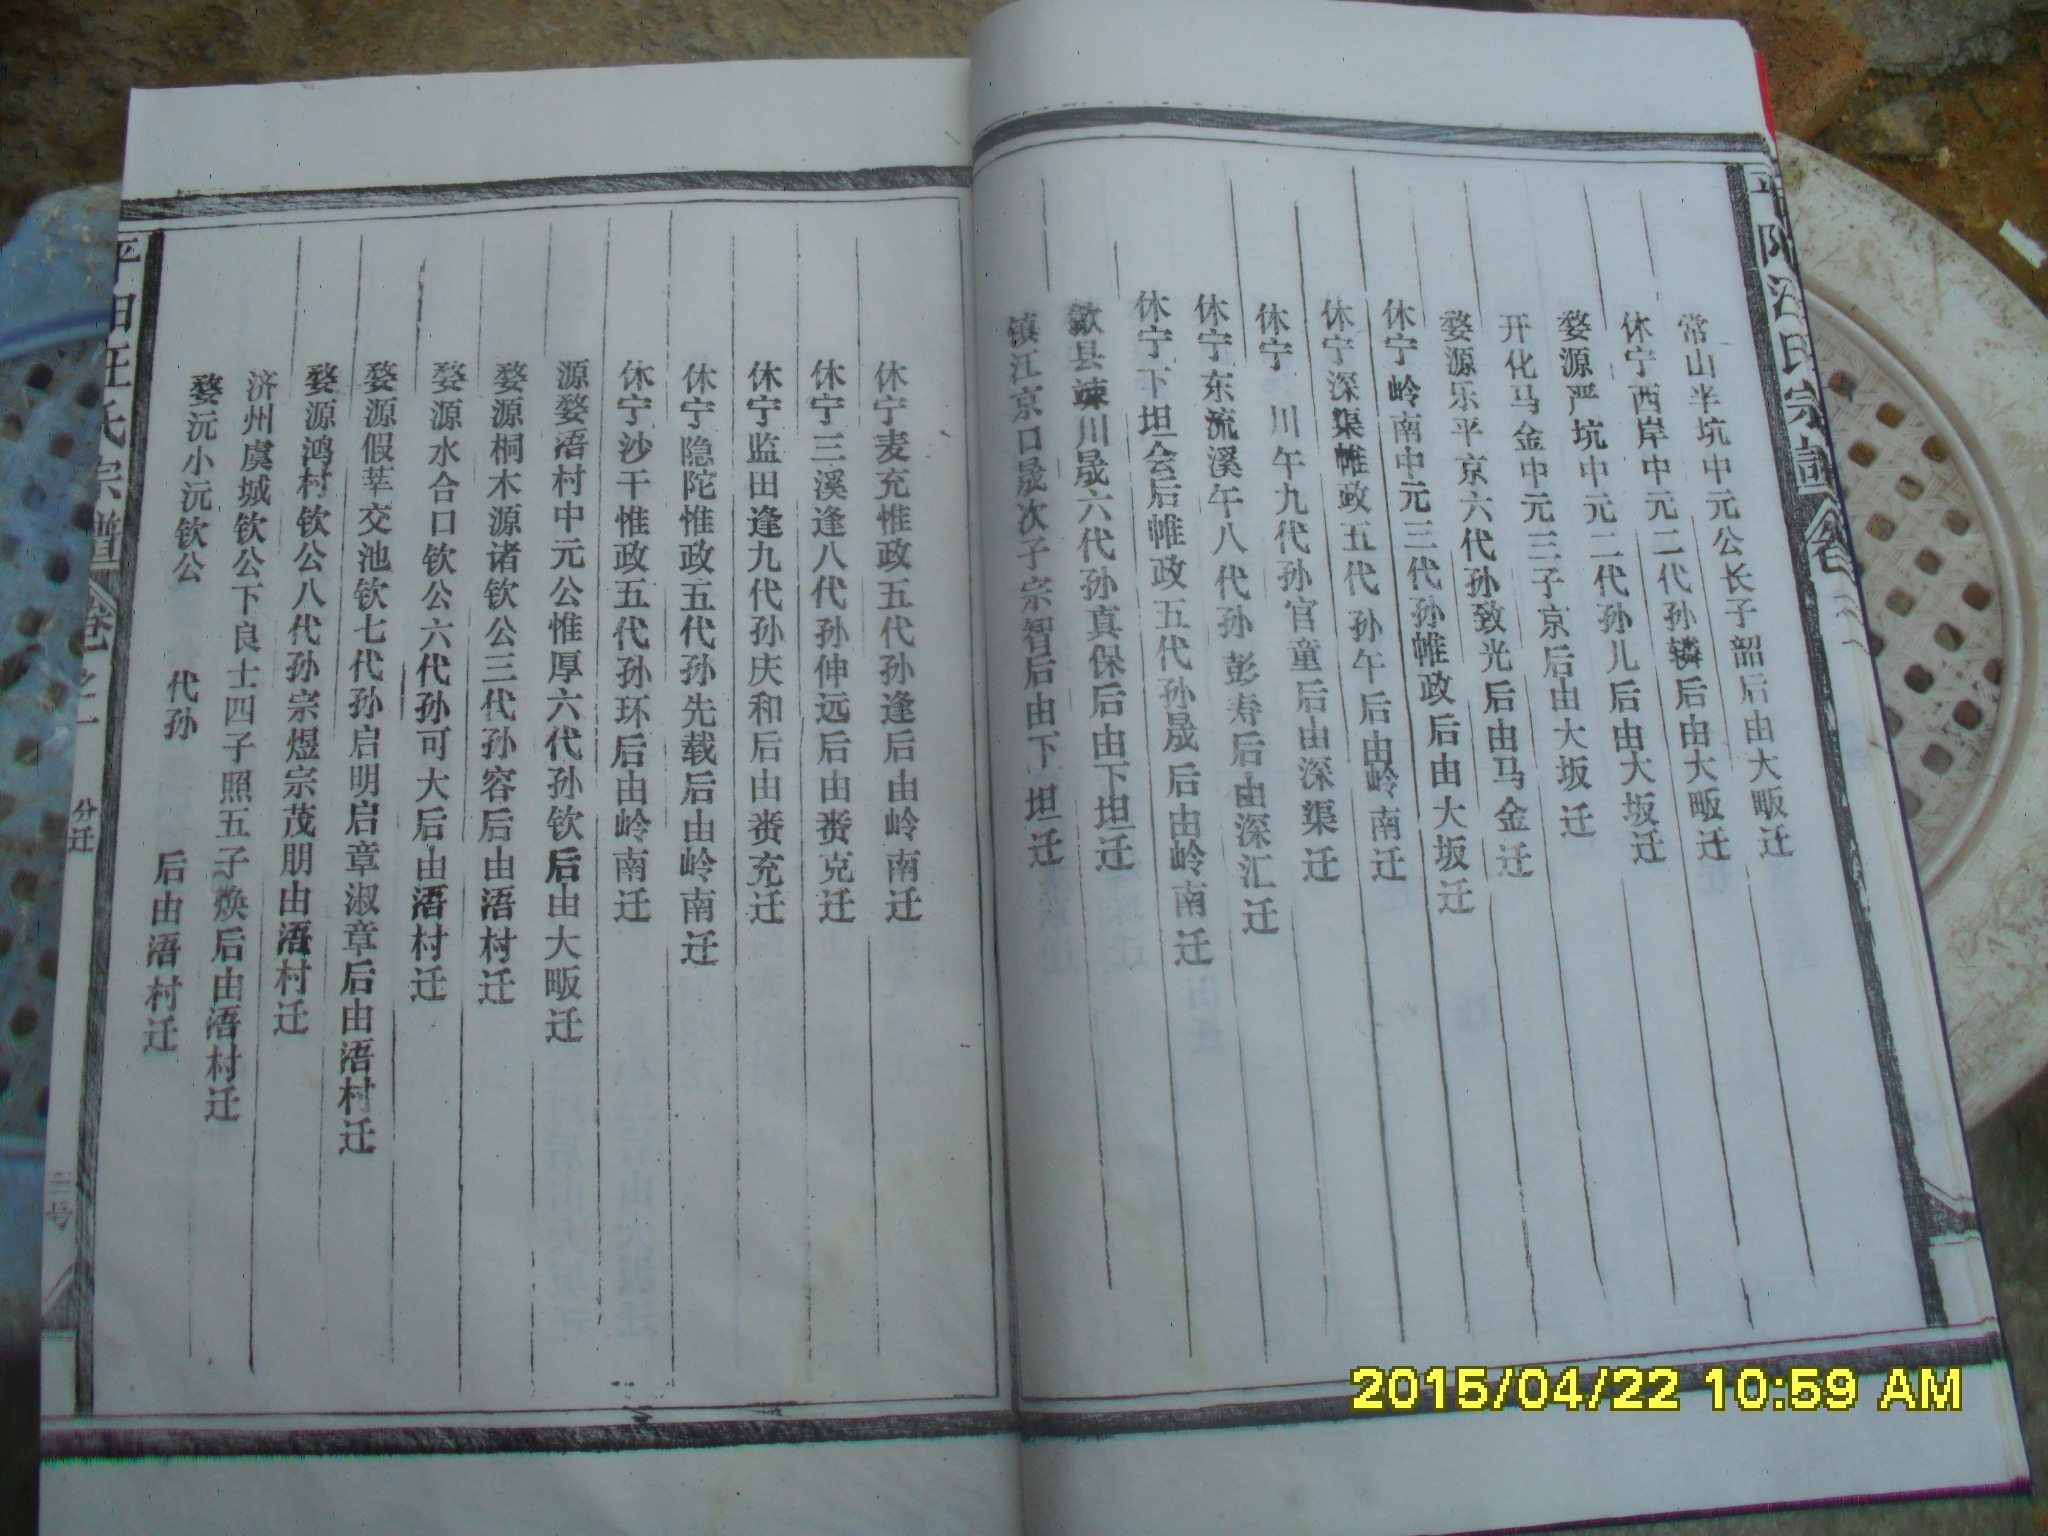 常山半坑中元公长子韶后由大畈迁
休宁西岸中元二代孙辚后由大畈迁
婺源严坑中元二代孙儿后由大坂迁
开化马金中元三子京后由大坂迁
婺源乐平京六代孙致光后由马金迁
休宁岭南中元三代孙帷政后由大坂迁
休宁深渠帷政五代孙午后由岭南迁
休宁 川午九代孙官童后由深渠迁
休宁东流溪午八代孙彭寿后由深汇迁
休宁下坦会后帷政五代孙晟后由岭南迁
歙县竦川晟六代孙真保后由下坦迁
镇江京口晟次子宗智后由下坦迁
休宁麦充惟政五代孙逢后由岭南迁
休宁三溪逢八代孙伸远后由赍克迁
休宁监田逢九代孙庆和后由赍充迁
休宁隐陀惟政五代孙先载后由岭南迁
休宁沙干惟政五代孙环后由岭南迁
源婺浯村中元公惟厚六代孙钦后由大畈迁
婺源桐木源诸钦公三代孙容后由浯村迁
婺源水合口钦公六代孙可大后由浯村迁
婺源假莘交池钦七代孙启明启章淑章后由浯村迁
婺源鸿村钦公八代孙宗煜宗茂朋由浯村迁
济州虞城钦公下良士四子照五子焕后由浯村迁
婺沅小沅钦公 代孙 后由浯村迁
平阳汪氏宗谱 卷之一 分迁 三号
2015/04/22 10:59 AM